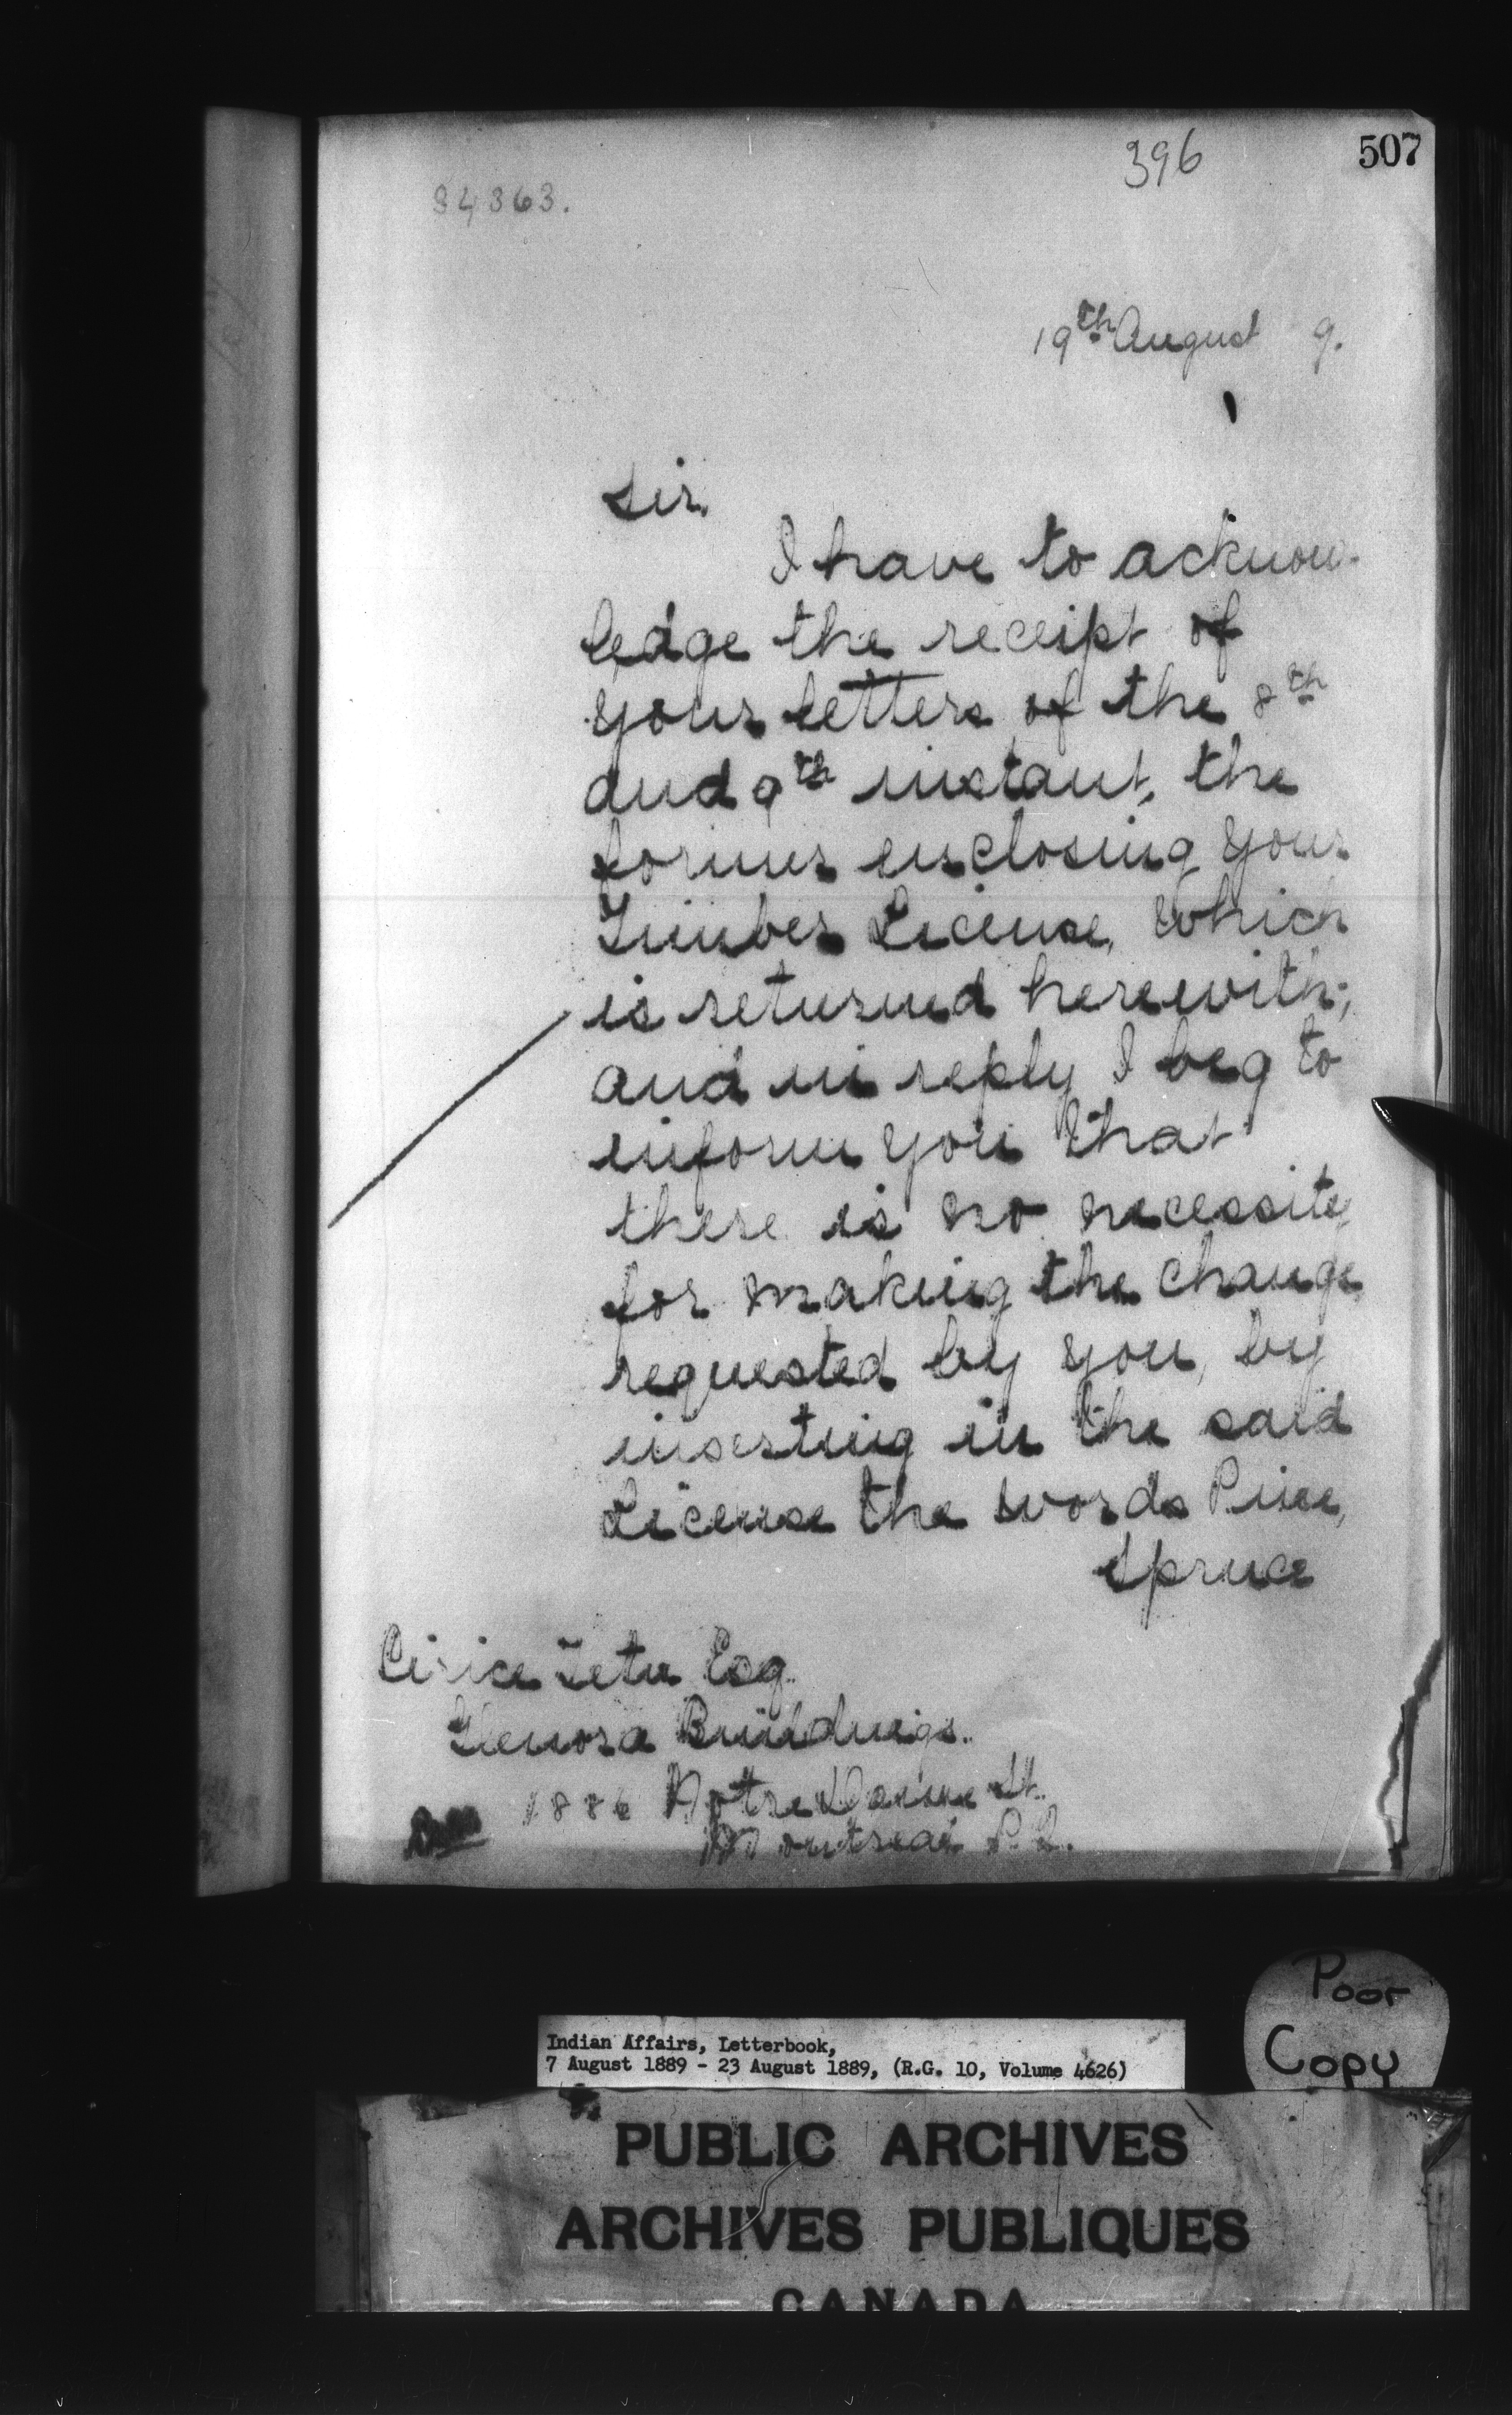 396
507
34363.
19th August 9.
Sir,
I have to acknow-
ledge the receipt of
your letters of the 8th
and 9th instant, the
former enclosing your
Timber License, which
is returned herewith;
and in reply I beg to
inform you that
there is no necessity
for making the change
requested by you, by
inserting in the said
License the words Pine,
Spruce
Tetu Esq.
Buildings.
Notre Dame St.
Montreal P.Q.
Poor
Copy
Indian Affairs, Letterbook,
7 August 1889 - 23 August 1889, (R.G. 10, Volume 4626)
PUBLIC ARCHIVES
ARCHIVES PUBLIQUES
CANADA